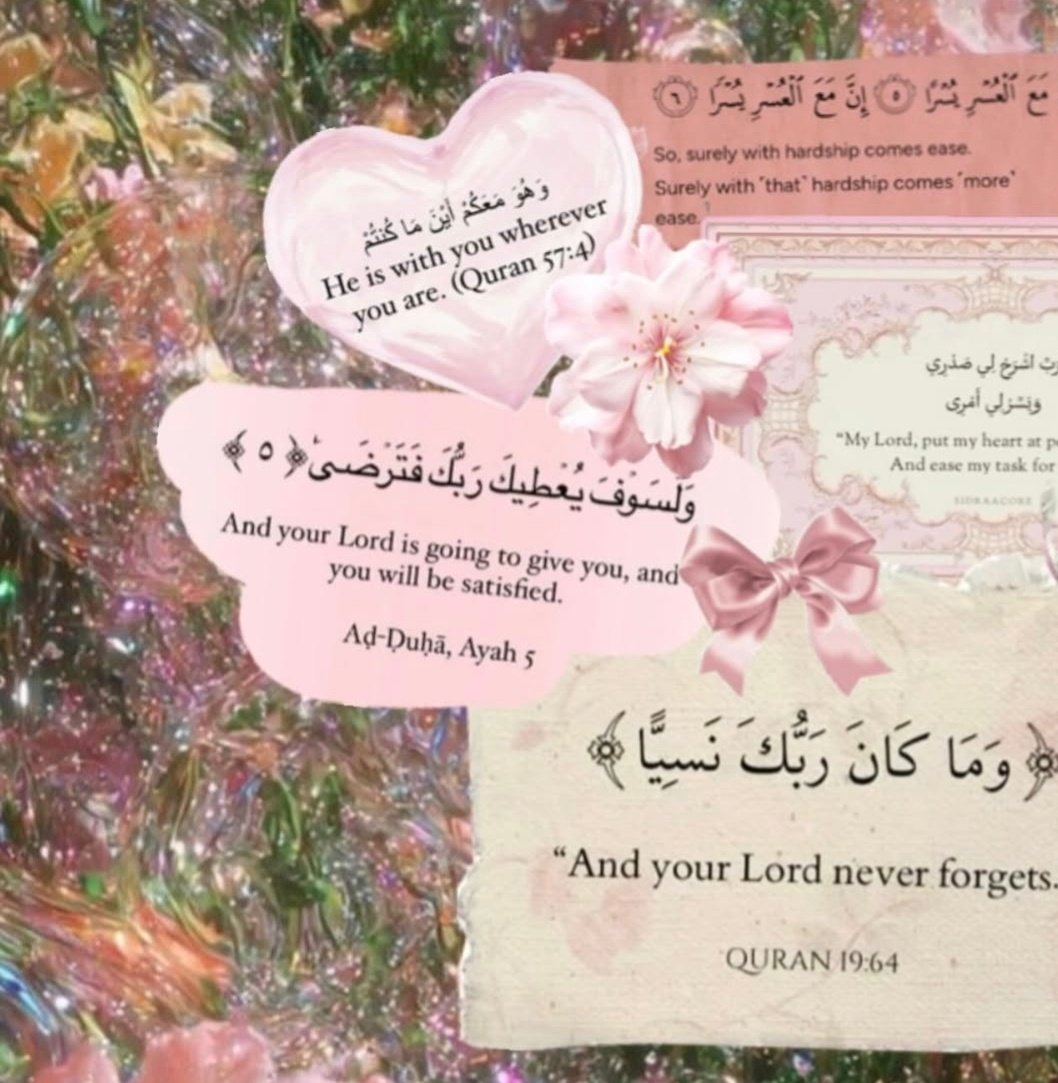 مَعَ ٱلْعُسْرِ يُسْرًا ۝٥ إِنَّ مَعَ ٱلْعُسْرِ يُسْرًا ۝٦
So, surely with hardship comes ease.
Surely with ˹that˺ hardship comes ˹more˺
ease.
وَهُوَ مَعَكُمْ أَيْنَ مَا كُنتُمْ
He is with you wherever
you are. (Quran 57:4)
اشْرَحْ لِي صَدْرِي
وَيَسِّرْ لِي أَمْرِي
“My Lord, put my heart at
And ease my task for
SIDRAACORE
وَلَسَوْفَ يُعْطِيكَ رَبُّكَ فَتَرْضَىٰ ﴿٥﴾
And your Lord is going to give you, and
you will be satisfied.
Aḍ-Ḍuḥā, Ayah 5
﴿وَمَا كَانَ رَبُّكَ نَسِيًّا﴾
“And your Lord never forgets.
QURAN 19:64